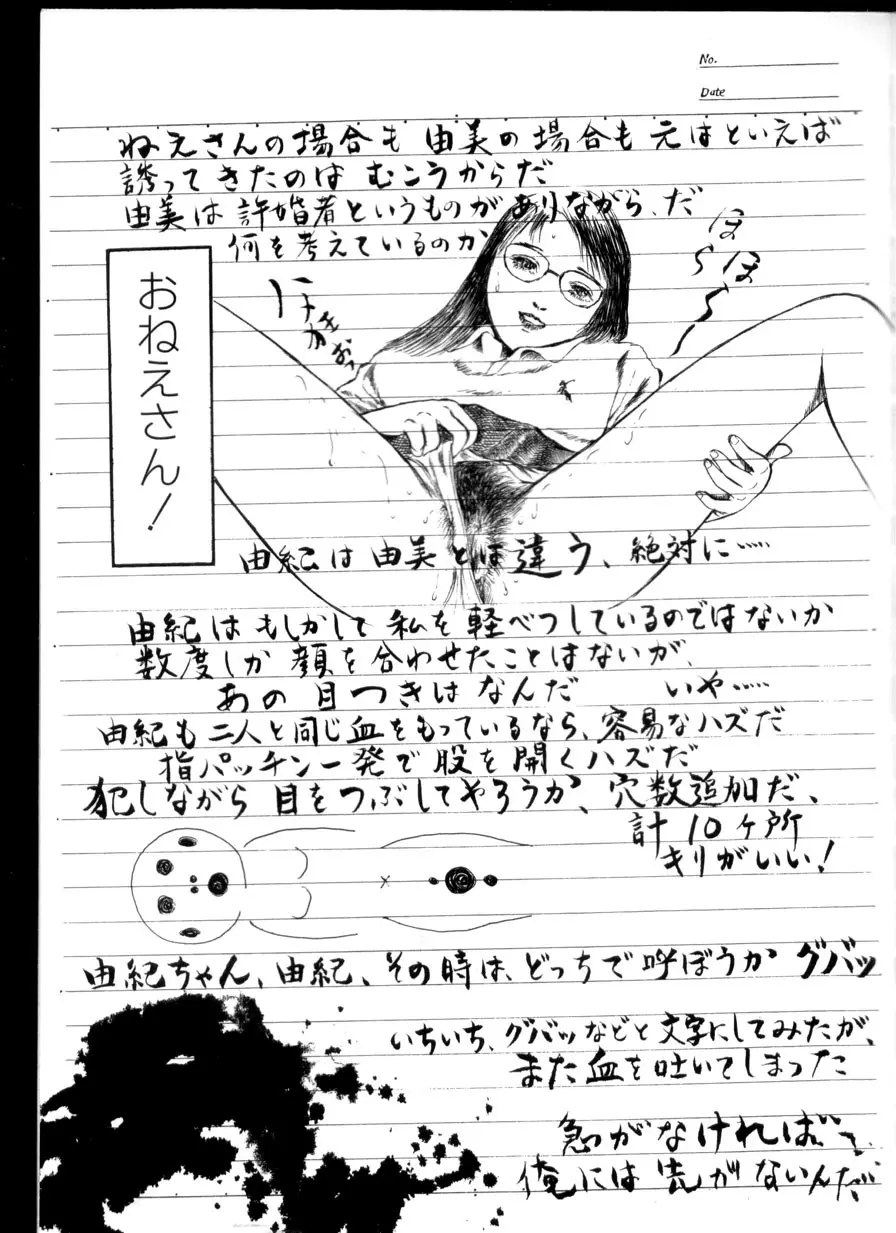 No.
Date
ねえさんの場合も 由美の場合も 元はといえば
誘ってきたのは むこうからだ
由美は 許婚者というものが ありながら、だ
何を考えているのか
おねえさん！
ほ〜
ほ〜
由紀は 由美とは違う、絶対に……
由紀は もしかして 私を 軽べつしているのではないか
数度しか 顔を 合わせたことはないが、
あの 目つきは なんだ　いや……
由紀も 二人と同じ血をもっているなら、容易なハズだ
指パッチン一発で 股を 開くハズだ
犯しながら 目をつぶしてやろうか、穴数追加だ、
計 10ヶ所
キリがいい！
由紀ちゃん、由紀、その時は、どっちで 呼ぼうか グバッ
いちいち、グバッなどと文字にしてみたが、
また血を吐いてしまった
急がなければ…
俺には 先がないんだ…